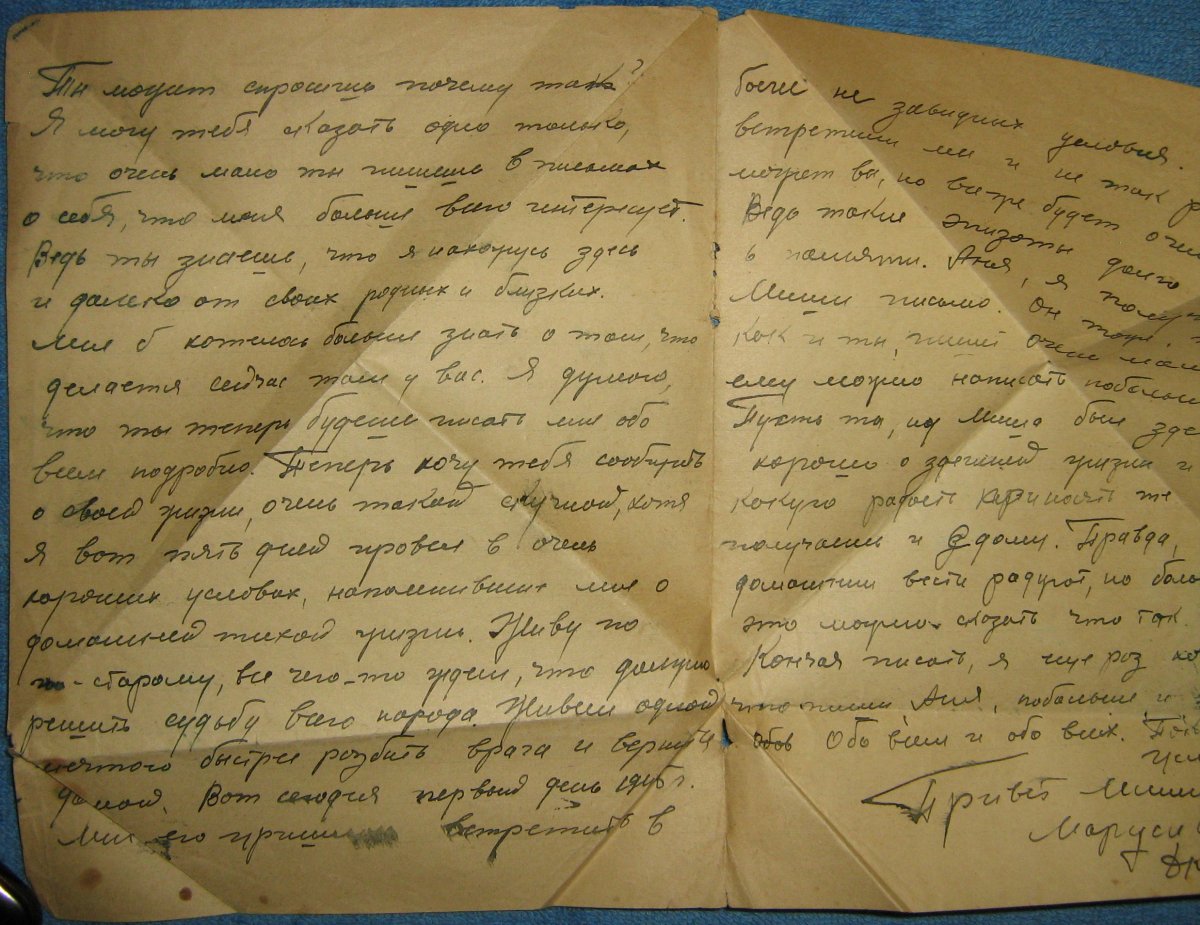 Ты может спросишь почему так?
Я могу тебя сказать одно только,
что очень мало ты пишешь в письмах
о себя, что меня больше всего интересует.
Ведь ты знаешь, что я нахожусь здесь
и далеко от своих родных и близких.
Мне б хотелось больше знать о том, что
делается сейчас там у вас. Я думаю,
что ты теперь будешь писать мне обо
всем подробно. Теперь хочу тебя сообщить
о своей жизни, очень такой скучной, хотя
я вот пять дней провел в очень
хороших условах, напомнивших мне о
домашней тихой жизни. Живу по
по-старому, все чего-то ждем, что должно
решить судьбу всего народа. Живем одной
мечтою быстрее разбить врага и вернуться
домой. Вот сегодня первый день 1945 г.
Мы его пришли встретить в
более не завидных условия.
встретили мы и не так
может вы, но все же будет
Ведь такие эпизоты долго
в памяти. Аня, я
Миши письмо. Он тоже,
как и ты, пишет очень мало
ему можно написать побольше
Пусть то, Миша был
хорошо о здешней жизни и
какую радость приносят те
получаешь и з дому. Правда,
домашнии вести радуют, но
это можно сказать что так.
Кончая писать, я еще раз
что пиши Аня, побольше и
Обо всем и обо всех.
Привет Мише
Маруси